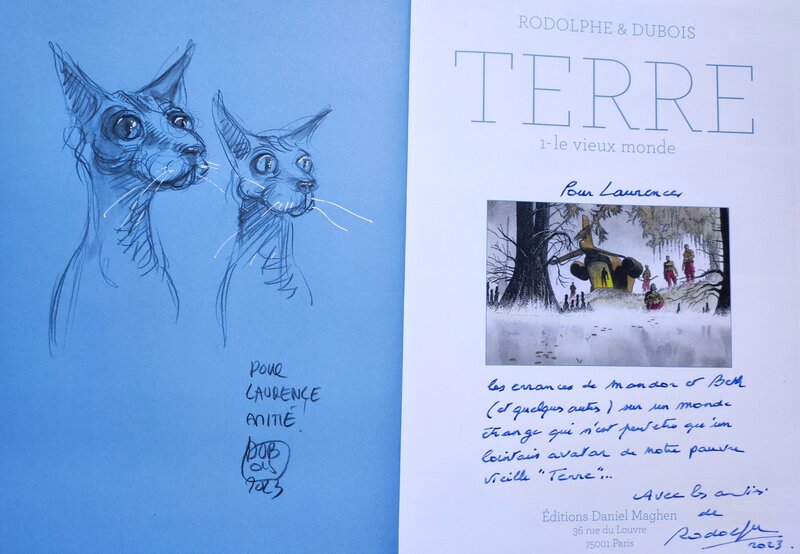 POUR
LAURENCE
AMITIÉ.
DUB
OIS
2023
RODOLPHE & DUBOIS
TERRE
1-le vieux monde
Pour Laurence
les errances de Mandor et Beth
(et quelques autres) sur un monde
étrange qui n'est peut être qu'un
lointain avatar de notre pauvre
vieille "Terre"...
Avec les amitiés
de
Rodolphe
2023.
Éditions Daniel Maghen
36 rue du Louvre
75001 Paris